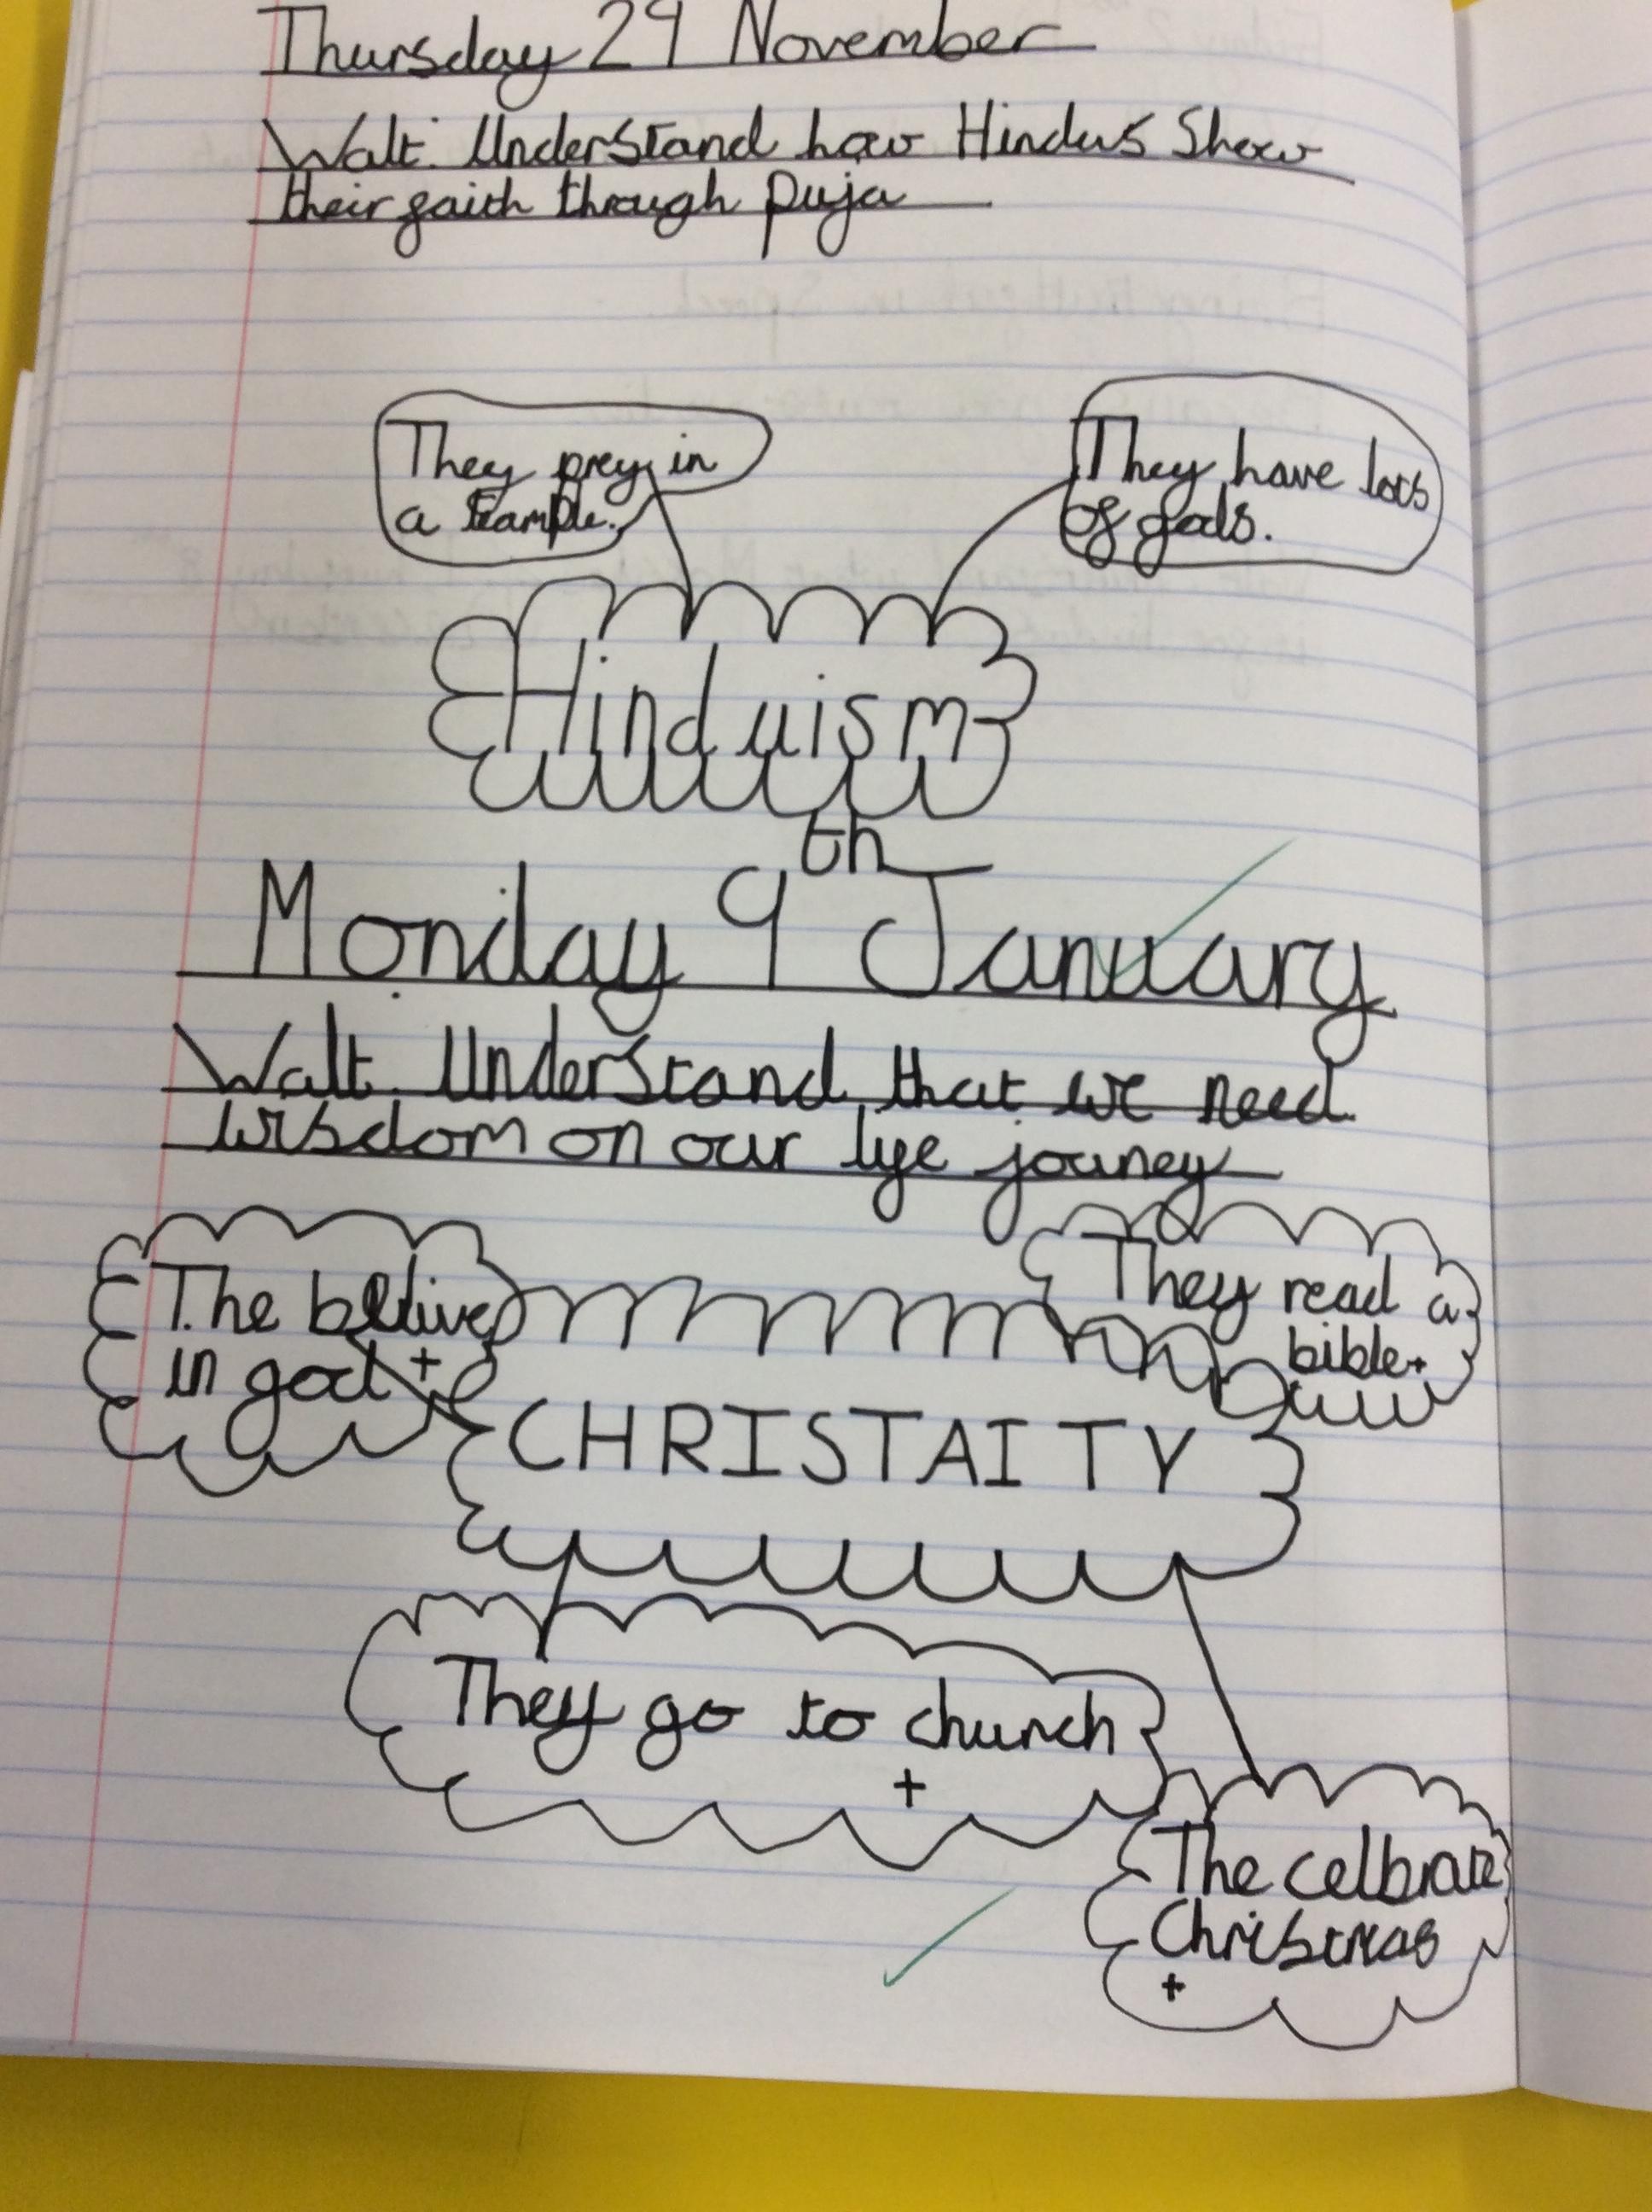 Thursday 29 November
Walt: Understand how Hindus Show
their faith through puja
They prey in
a
They have lots
of gods.
Hinduism
th
Monday 9 January
Walt. Understand that we need
wisdom on our life jouney
The belive
in god +
They read a
bible +
CHRISTAITY
They go to church
+
The celbrate
Christmas
+